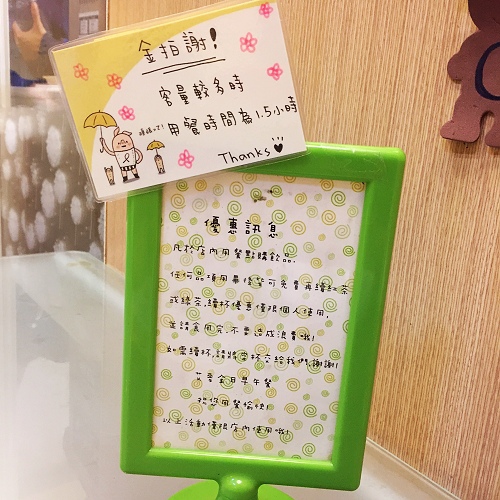 金拍謝!
客量較多時
用餐時間為1.5小時
Thanks
優惠訊息
凡於店內用餐點購飲品,
任何品項用畢後皆可免費再續紅茶
或綠茶,續杯優惠僅限個人使用,
並請食用完,不要造成浪費哦!
如需續杯,請將空杯交給我們,謝謝!
早午餐
祝您用餐愉快!
以上活動僅限店內使用哦!